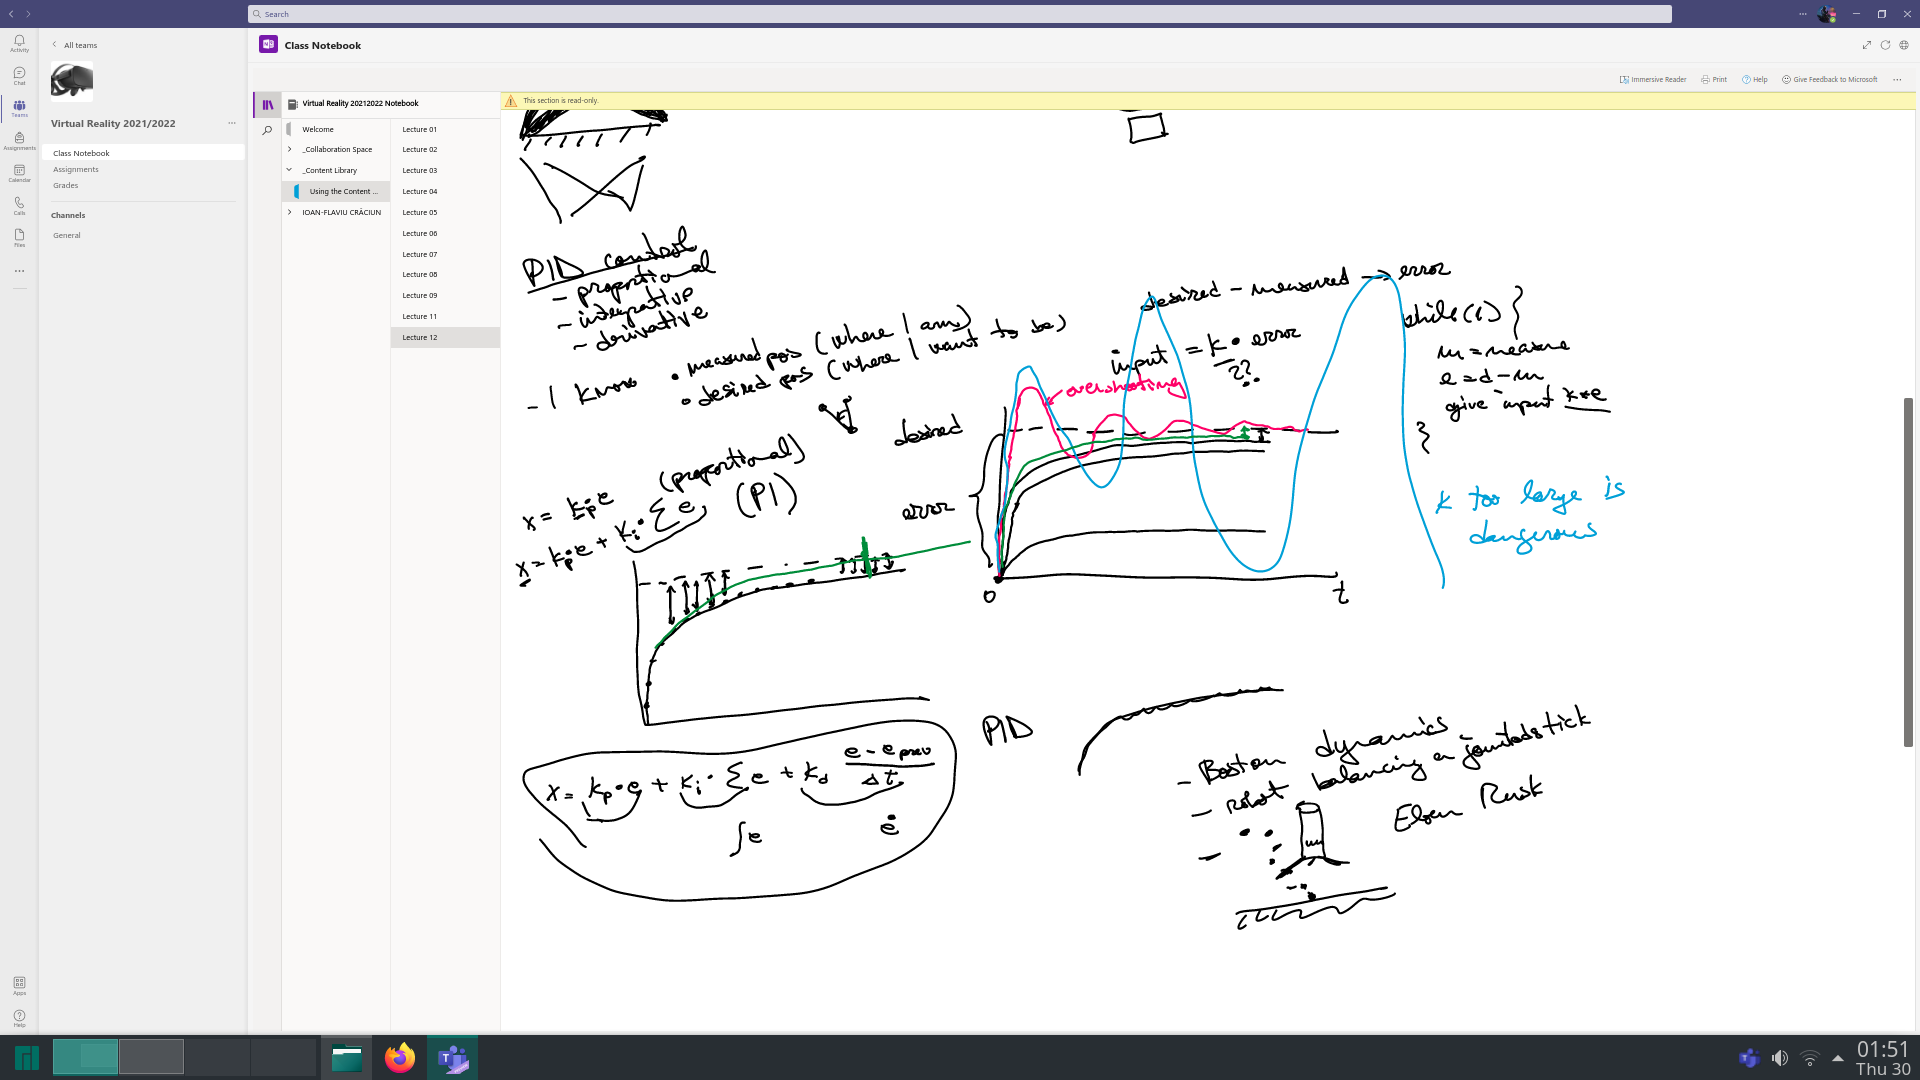 Search
Activity
Chat
Teams
Assignments
Calendar
Calls
Files
Apps
Help
All teams
Virtual Reality 2021/2022
Class Notebook
Assignments
Grades
Channels
General
Class Notebook
Immersive Reader
Print
Help
Give Feedback to Microsoft
Virtual Reality 20212022 Notebook
Welcome
_Collaboration Space
_Content Library
Using the Content ...
IOAN-FLAVIU CRĂCIUN
Lecture 01
Lecture 02
Lecture 03
Lecture 04
Lecture 05
Lecture 06
Lecture 07
Lecture 08
Lecture 09
Lecture 11
Lecture 12
This section is read-only.
PID control
- proportional
- integrative
- derivative
- I know
• measured pos (where I am)
• desired pos (where I want to be)
desired - measured → error
input = k • error
??
while(1) {
m = measure
e = d - m
give input k*e
}
overshooting
desired
error
0
t
k too large is
dangerous
x = kp•e (proportional)
x = kp•e + ki•∑e (PI)
x = kp•e + ki•∑e + kd (e - e prev)/Δt
∫e
ė
PID
- Boston dynamics
- robot balancing on joint
stick
Elon
01:51
Thu 30